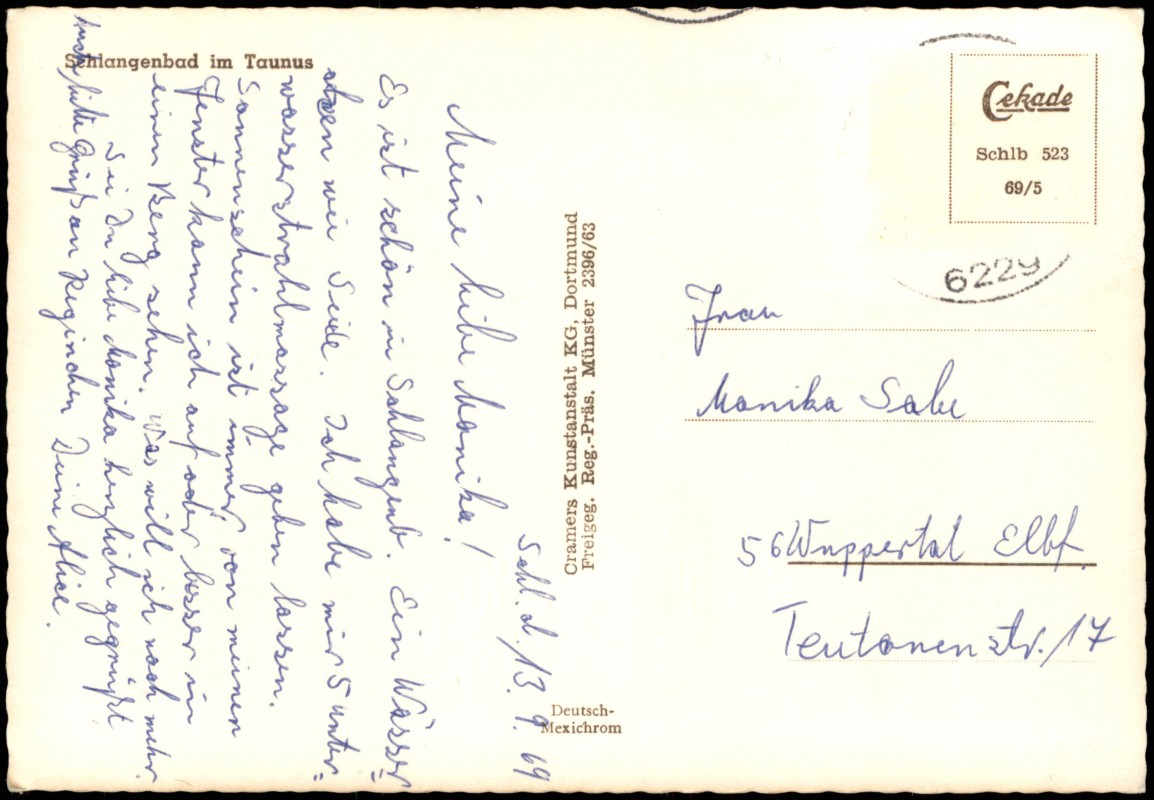 Schlangenbad im Taunus
Schl. d./13. 9. 69
Meine liebe Monika!
Es ist schön in Schlangenb. Ein Wässer=
chen wie Seide. Ich habe mir 5 unter=
wasserstrahlmassage geben lassen.
Sonnenschein ist immer von meinen
Fenster kann ich auf oder besser in
einen Berg sehen. Was will ich noch mehr.
Sei Du liebe Monika herzlich gegrüßt
bitte Gruß an Reginchen Deine Alice.
Cramers Kunstanstalt KG, Dortmund
Freigeg. Reg.-Präs. Münster 2396/63
Deutsch-
Mexichrom
Cekade
Schlb 523
69/5
6229
Frau
Monika Sabe
56 Wuppertal Elbf.
Teutonenstr. 17